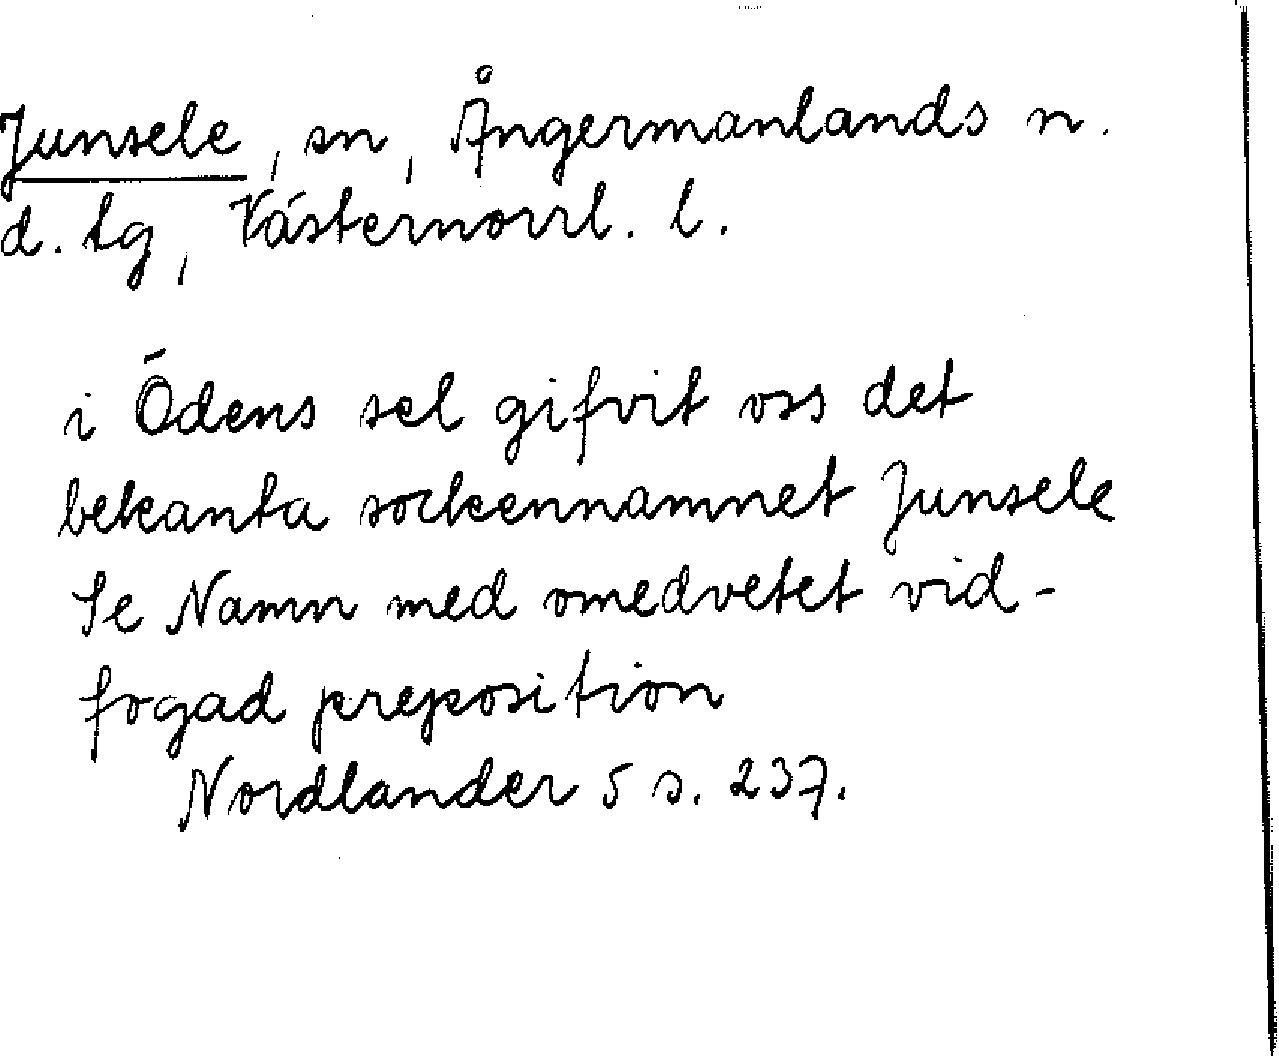 Junsele, sn, Ångermanlands n.
d. tg, Västernorrl. l.
i Ōdens sel gifvit oss det
bekanta sockennamnet Junsele
Se Namn med omedvetet vid-
fogad preposition
Nordlander 5 s. 237.